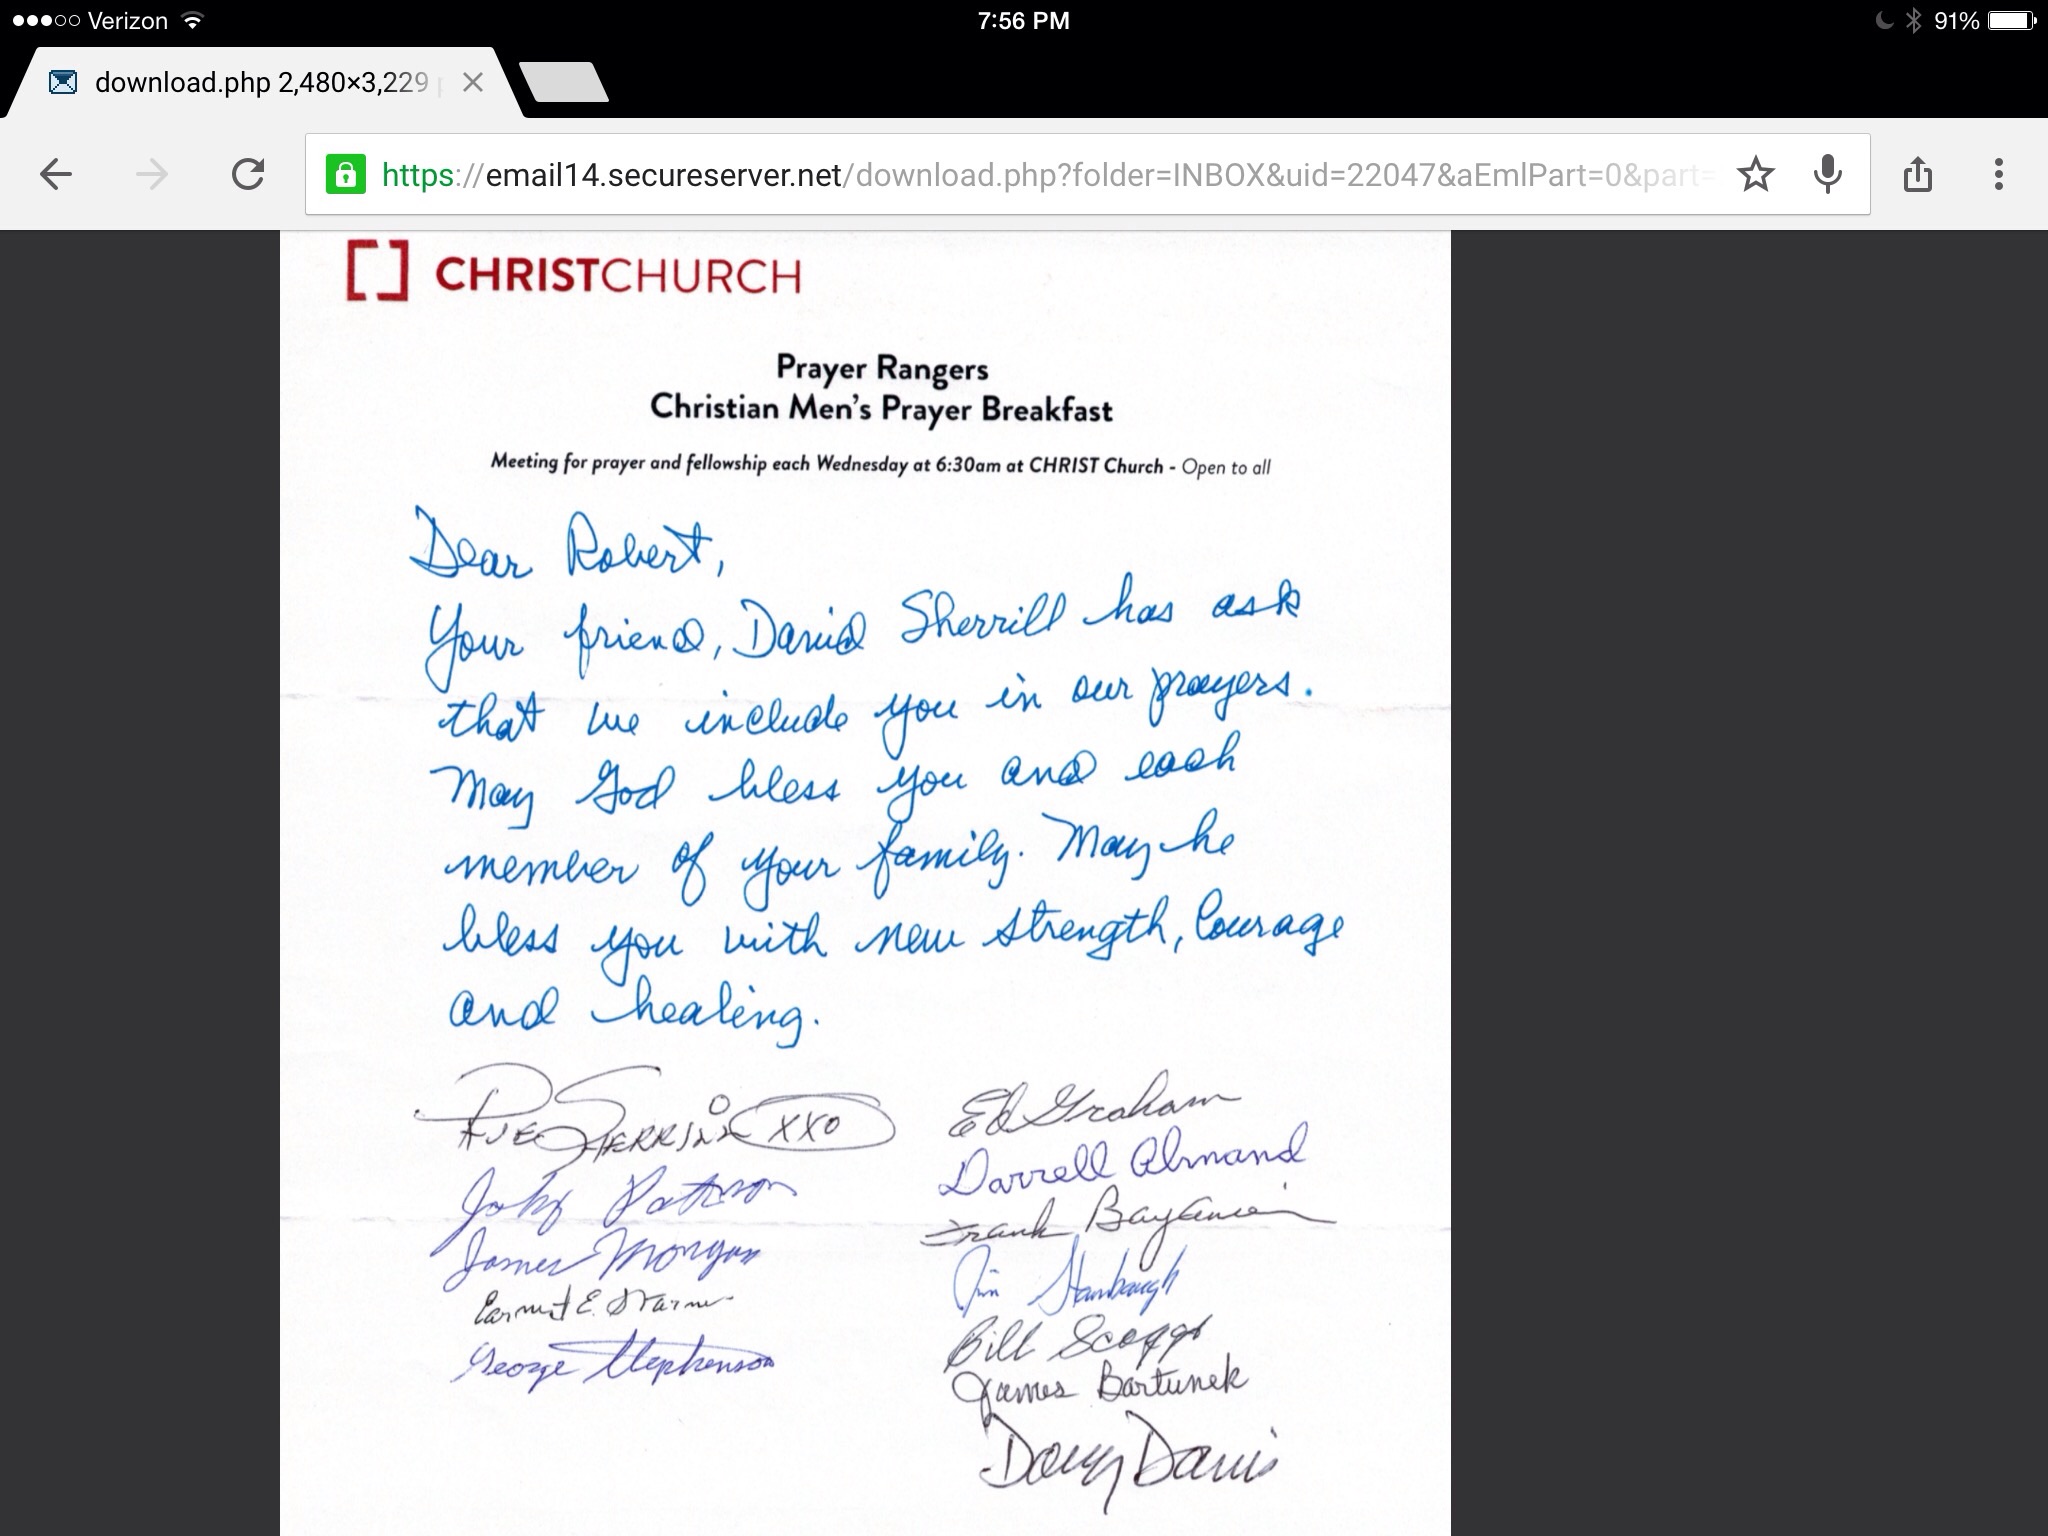 Verizon 7:56 PM 91%
download.php 2,480×3,229
https://email14.secureserver.net/download.php?folder=INBOX&uid=22047&aEmlPart=0&part=
[ ] CHRISTCHURCH
Prayer Rangers
Christian Men's Prayer Breakfast
Meeting for prayer and fellowship each Wednesday at 6:30am at CHRIST Church - Open to all
Dear Robert,
Your friend, David Sherrill has ask
that we include you in our prayers.
May God bless you and each
member of your family. May he
bless you with new strength, Courage
and healing.
XXO
Ed Graham
Darrell Almand
Frank
Jim Stambaugh
James Morgan
Bill Scoggs
George Stephenson
James Bartunek
Doug Davis